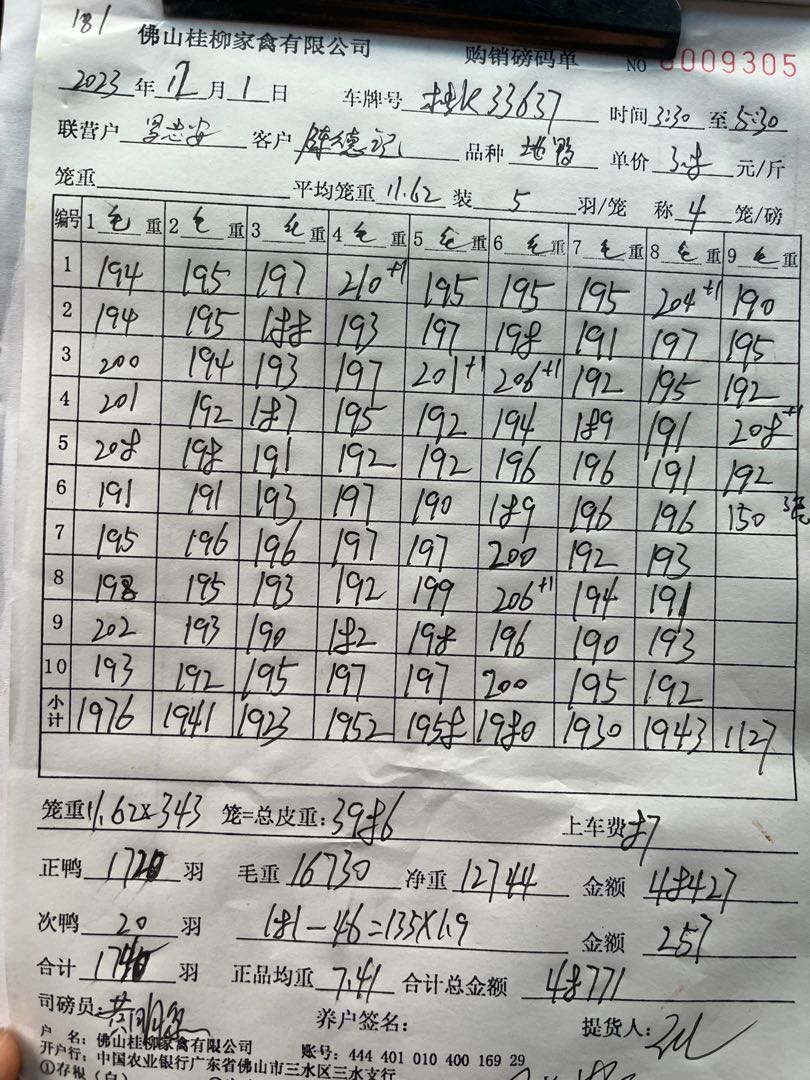 181
佛山桂柳家禽有限公司 购销磅码单 NO 0009305
2023年12月1日 车牌号 桂K33637 时间 3:30 至 5:30
联营户 客户 陈德记 品种 单价 3.8 元/斤
笼重 平均笼重 11.62 装 5 羽/笼 称 4 笼/磅
编号 1 毛 重 2 毛 重 3 毛 重 4 毛 重 5 毛 重 6 毛 重 7 毛 重 8 毛 重 9 毛 重
1 194 195 197 210+1 195 195 195 204+1 190
2 194 195 188 193 197 198 191 197 195
3 200 194 193 197 201+1 206+1 192 195 192
4 201 192 187 195 192 194 189 191 208+1
5 208 198 191 192 192 196 196 191 192
6 191 191 193 197 190 189 196 196 150 3笼
7 195 196 196 197 197 200 192 193
8 198 195 193 192 199 206+1 194 191
9 202 193 190 182 198 196 190 193
10 193 192 195 197 197 200 195 192
小计 1976 1941 1923 1952 1958 1980 1930 1943 1127
笼重 11.62×343 笼=总皮重: 3986 上车费 87
正鸭 1720 羽 毛重 16730 净重 12744 金额 48427
次鸭 20 羽 181-46=135×1.9 金额 257
合计 1740 羽 正品均重 7.41 合计总金额 48771
司磅员: 养户签名: 提货人:
户 名: 佛山桂柳家禽有限公司 账号: 444 401 010 400 169 29
开户行: 中国农业银行广东省佛山市三水区三水支行
①存根(白)